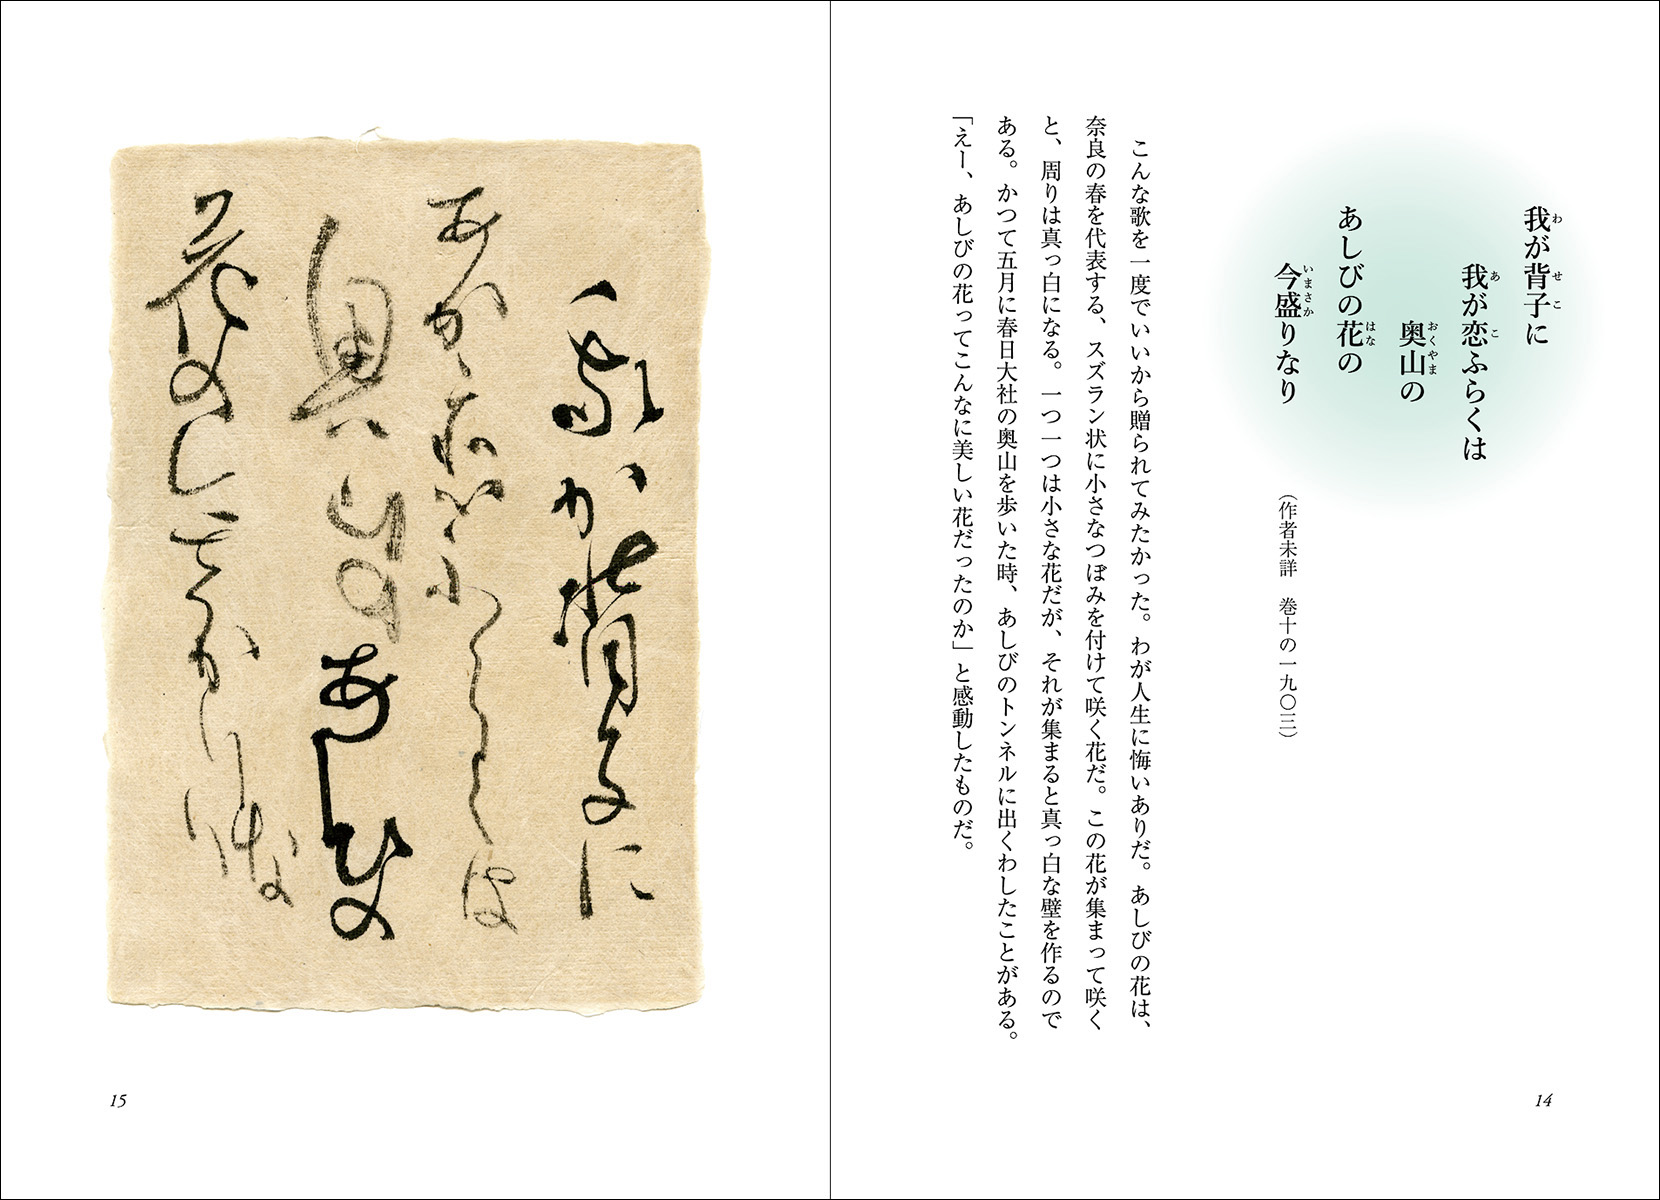 わ せこ
我が背子に
あ こ
我が恋ふらくは
おくやま
奥山の
はな
あしびの花の
いまさか
今盛りなり
（作者未詳　巻十の一九〇三）
こんな歌を一度でいいから贈られてみたかった。わが人生に悔いありだ。あしびの花は、
奈良の春を代表する、スズラン状に小さなつぼみを付けて咲く花だ。この花が集まって咲く
と、周りは真っ白になる。一つ一つは小さな花だが、それが集まると真っ白な壁を作るので
ある。かつて五月に春日大社の奥山を歩いた時、あしびのトンネルに出くわしたことがある。
「えー、あしびの花ってこんなに美しい花だったのか」と感動したものだ。
14
我か背子に
あかふらくは
奥山のあしひの
花のさかりなり
15